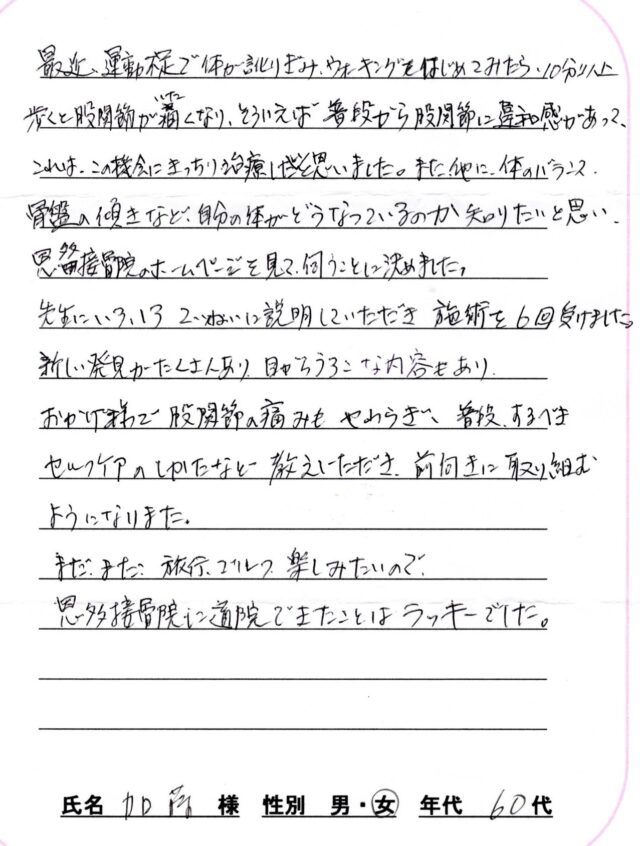 最近、運動不足で体が訛りぎみ、ウォーキングをはじめてみたら、10分以上
歩くと股関節が痛くなり、そういえば普段から股関節に違和感があって、
いた
これは、この機会にきっちり治療しようと思いました。また、他に、体のバランス、
骨盤の傾きなど、自分の体がどうなっているのか知りたいと思い、
恩多接骨院のホームページを見て、伺うことに決めました。
先生にいろいろていねいに説明していただき施術を6回受けました。
新しい発見がたくさんあり、目からうろこな内容もあり、
おかげ様で股関節の痛みもやわらぎ、普段、するべき
セルフケアのしかたなど教えいただき、前向きに取り組む
ようになりました。
まだ、まだ、旅行、ゴルフ、楽しみたいので、
恩多接骨院に通院できたことはラッキーでした。
氏名 加 様 性別 男・女 年代 60代